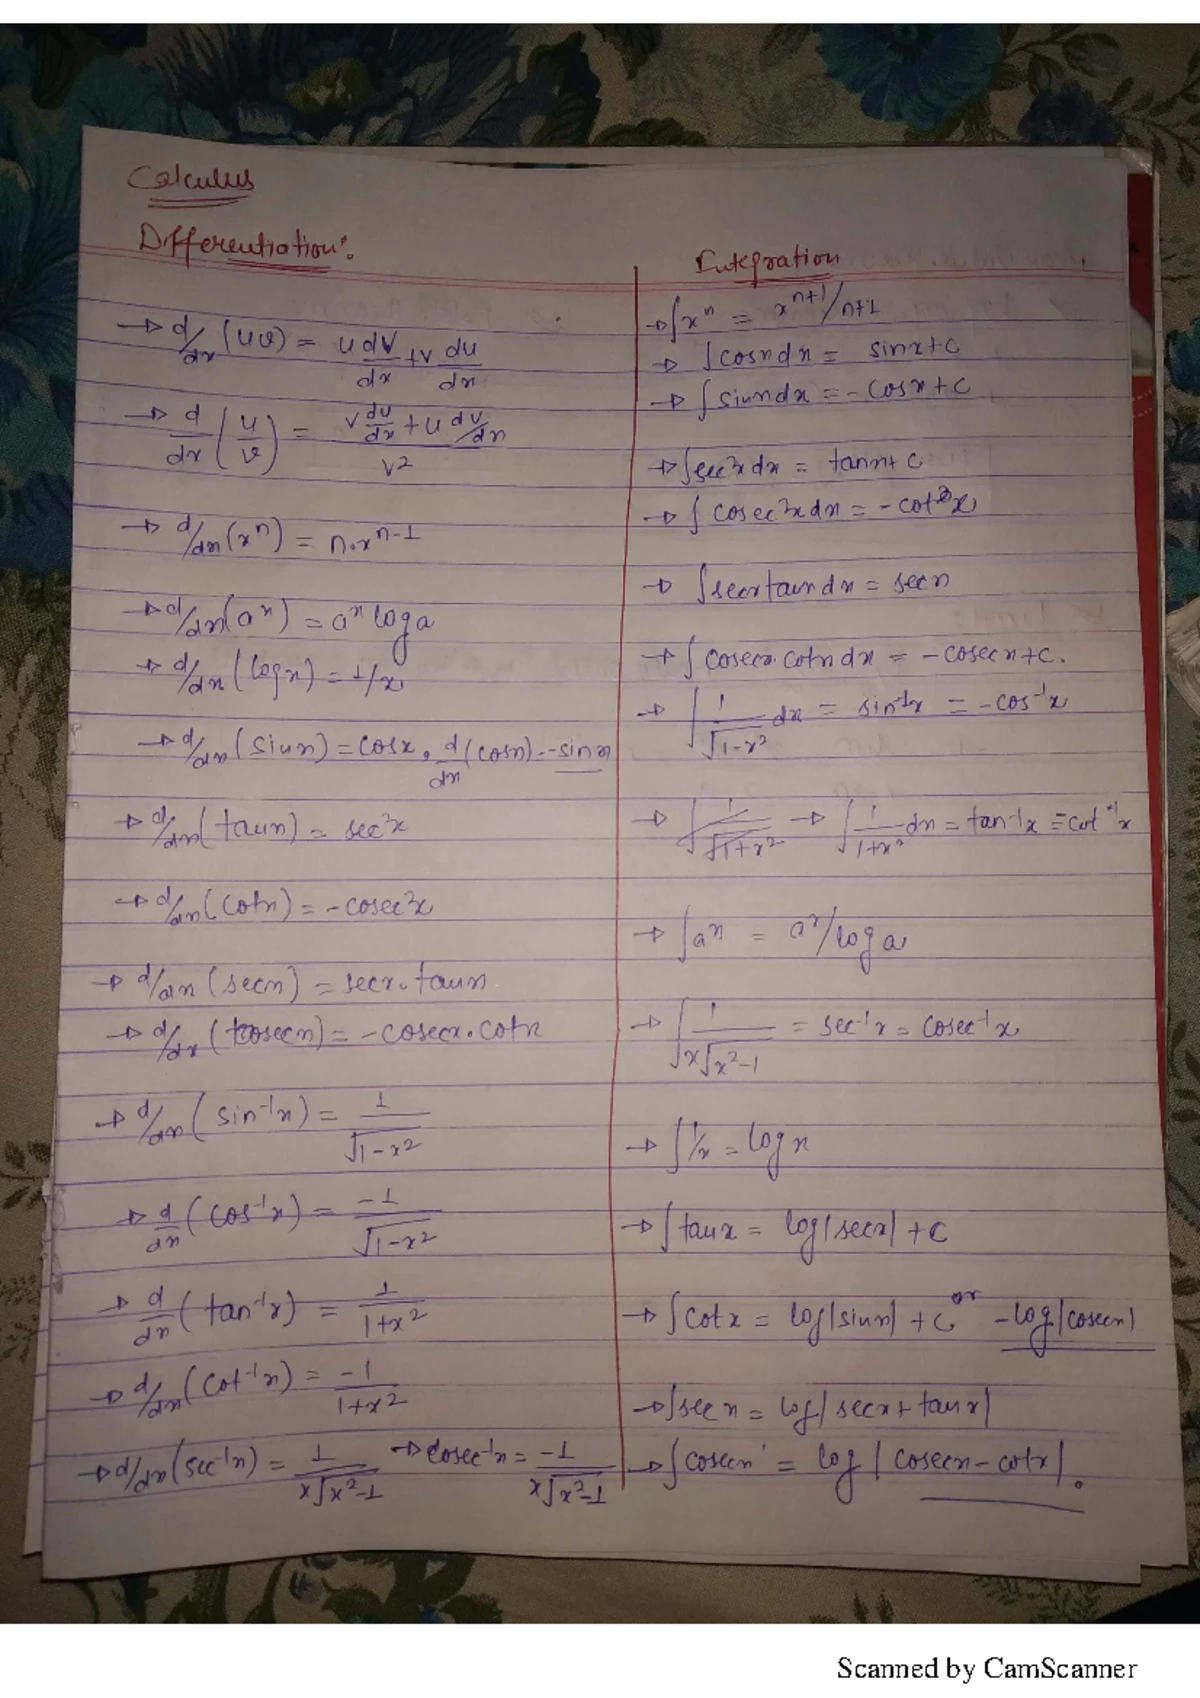 Calculus
Differentiation:
→ d/dx (uv) = u dv/dx + v du/dx
→ d/dx (u/v) = v du/dx + u dv/dx / v²
→ d/dx (xⁿ) = n·xⁿ⁻¹
→ d/dx (aˣ) = aˣ log a
→ d/dx (log x) = 1/x
→ d/dx (sinx) = cosx, d/dx (cosx) = -sinx
→ d/dx (tanx) = sec²x
→ d/dx (cotx) = -cosec²x
→ d/dx (secx) = secx.tanx
→ d/dx (cosecx) = -cosecx.cotx
→ d/dx (sin⁻¹x) = 1/√1-x²
→ d/dx (cos⁻¹x) = -1/√1-x²
→ d/dx (tan⁻¹x) = 1/1+x²
→ d/dx (cot⁻¹x) = -1/1+x²
→ d/dx (sec⁻¹x) = 1/x√x²-1 → cosec⁻¹x = -1/x√x²-1
Integration
→ ∫xⁿ = xⁿ⁺¹/n+1
→ ∫cosxdx = sinx+c
→ ∫sinxdx = -cosx+c
→ ∫sec²xdx = tanx+c
→ ∫cosec²xdx = -cotx
→ ∫secxtanxdx = secx
→ ∫cosecx.cotxdx = -cosecx+c.
→ ∫1/√1-x² dx = sin⁻¹x = -cos⁻¹x
→ ∫1/√1+x² → ∫1/1+x² dx = tan⁻¹x = -cot⁻¹x
→ ∫aˣ = aˣ/log a
→ ∫1/x√x²-1 = sec⁻¹x = cosec⁻¹x
→ ∫1/x = log x
→ ∫tanx = log|secx| + c
→ ∫cotx = log|sinx| + c or -log|cosecx|
→ ∫secx = log|secx+tanx|
→ ∫cosecx = log|cosecx-cotx|.
Scanned by CamScanner